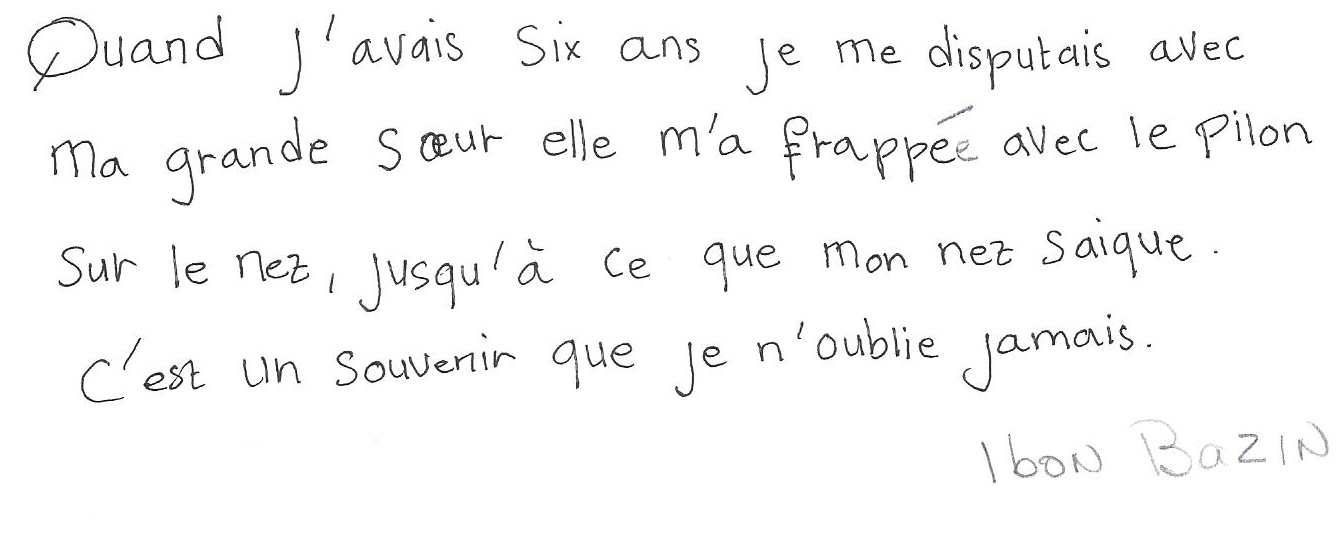 Quand j'avais Six ans je me disputais avec
Ma grande Sœur elle m'a frappée avec le Pilon
Sur le nez, jusqu'à ce que mon nez saique.
C'est un souvenir que je n'oublie jamais.
Ibon Bazin